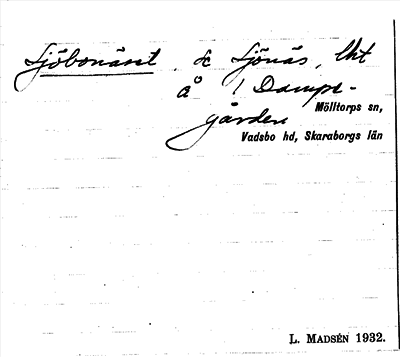 Sjöbonäset. & Sjönäs, lht
å 1 Damps-
gården
Mölltorps sn,
Vadsbo hd, Skaraborgs län
L. MADSÉN 1932.